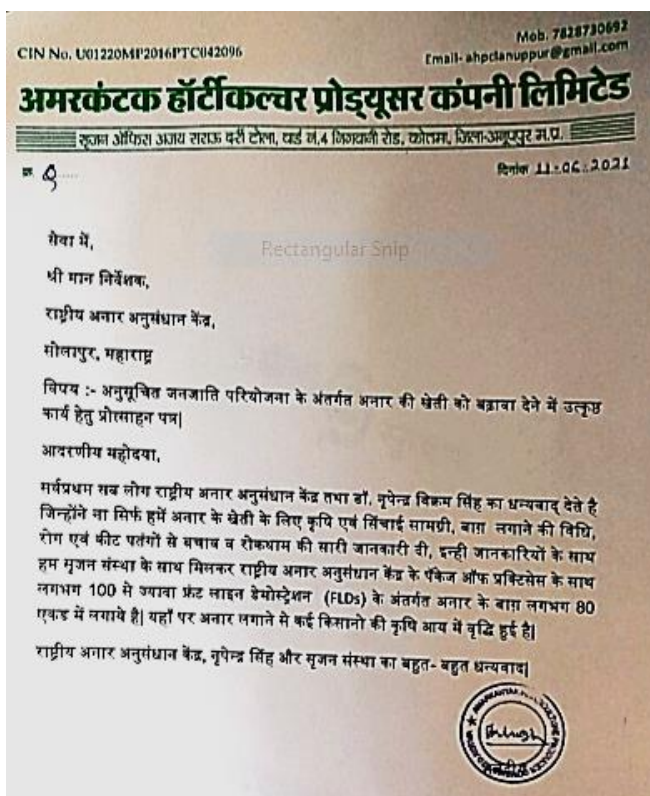 Mob. 7828730692
CIN No. U01220MP2016PTC042096
Email- ahpclanuppur@gmail.com
अमरकंटक हॉर्टीकल्चर प्रोड्यूसर कंपनी लिमिटेड
सृजन ऑफिस अजय सराफ दफ़ाई टोला, वार्ड नं.4 निगवानी रोड, कोतमा, जिला-अनूपपुर म.प्र.
क्र. 9
दिनांक 11.06.2021
Rectangular Snip
सेवा में,
श्री मान निर्देशक,
राष्ट्रीय अनार अनुसंधान केंद्र,
सोलापुर, महाराष्ट्र
विषय :- अनुसूचित जनजाति परियोजना के अंतर्गत अनार की खेती को बढ़ावा देने में उत्कृष्ठ
कार्य हेतु प्रोत्साहन पत्र|
आदरणीय महोदया,
सर्वप्रथम सब लोग राष्ट्रीय अनार अनुसंधान केंद्र तथा डॉ. नृपेन्द्र विक्रम सिंह का धन्यवाद् देते है
जिन्होंने ना सिर्फ हमें अनार के खेती के लिए कृषि एवं सिंचाई सामग्री, बाग़ लगाने की विधि,
रोग एवं कीट पतंगों से बचाव व रोकथाम की सारी जानकारी दी, इन्ही जानकारियों के साथ
हम सृजन संस्था के साथ मिलकर राष्ट्रीय अनार अनुसंधान केंद्र के पॅकेज ऑफ प्रक्टिसेस के साथ
लगभग 100 से ज्यादा फ्रंट लाइन डेमोस्ट्रेशन (FLDs) के अंतर्गत अनार के बाग़ लगभग 80
एकड में लगाये है| यहाँ पर अनार लगाने से कई किसानो की कृषि आय में वृद्धि हुई है|
राष्ट्रीय अनार अनुसंधान केंद्र, नृपेन्द्र सिंह और सृजन संस्था का बहुत- बहुत धन्यवाद|